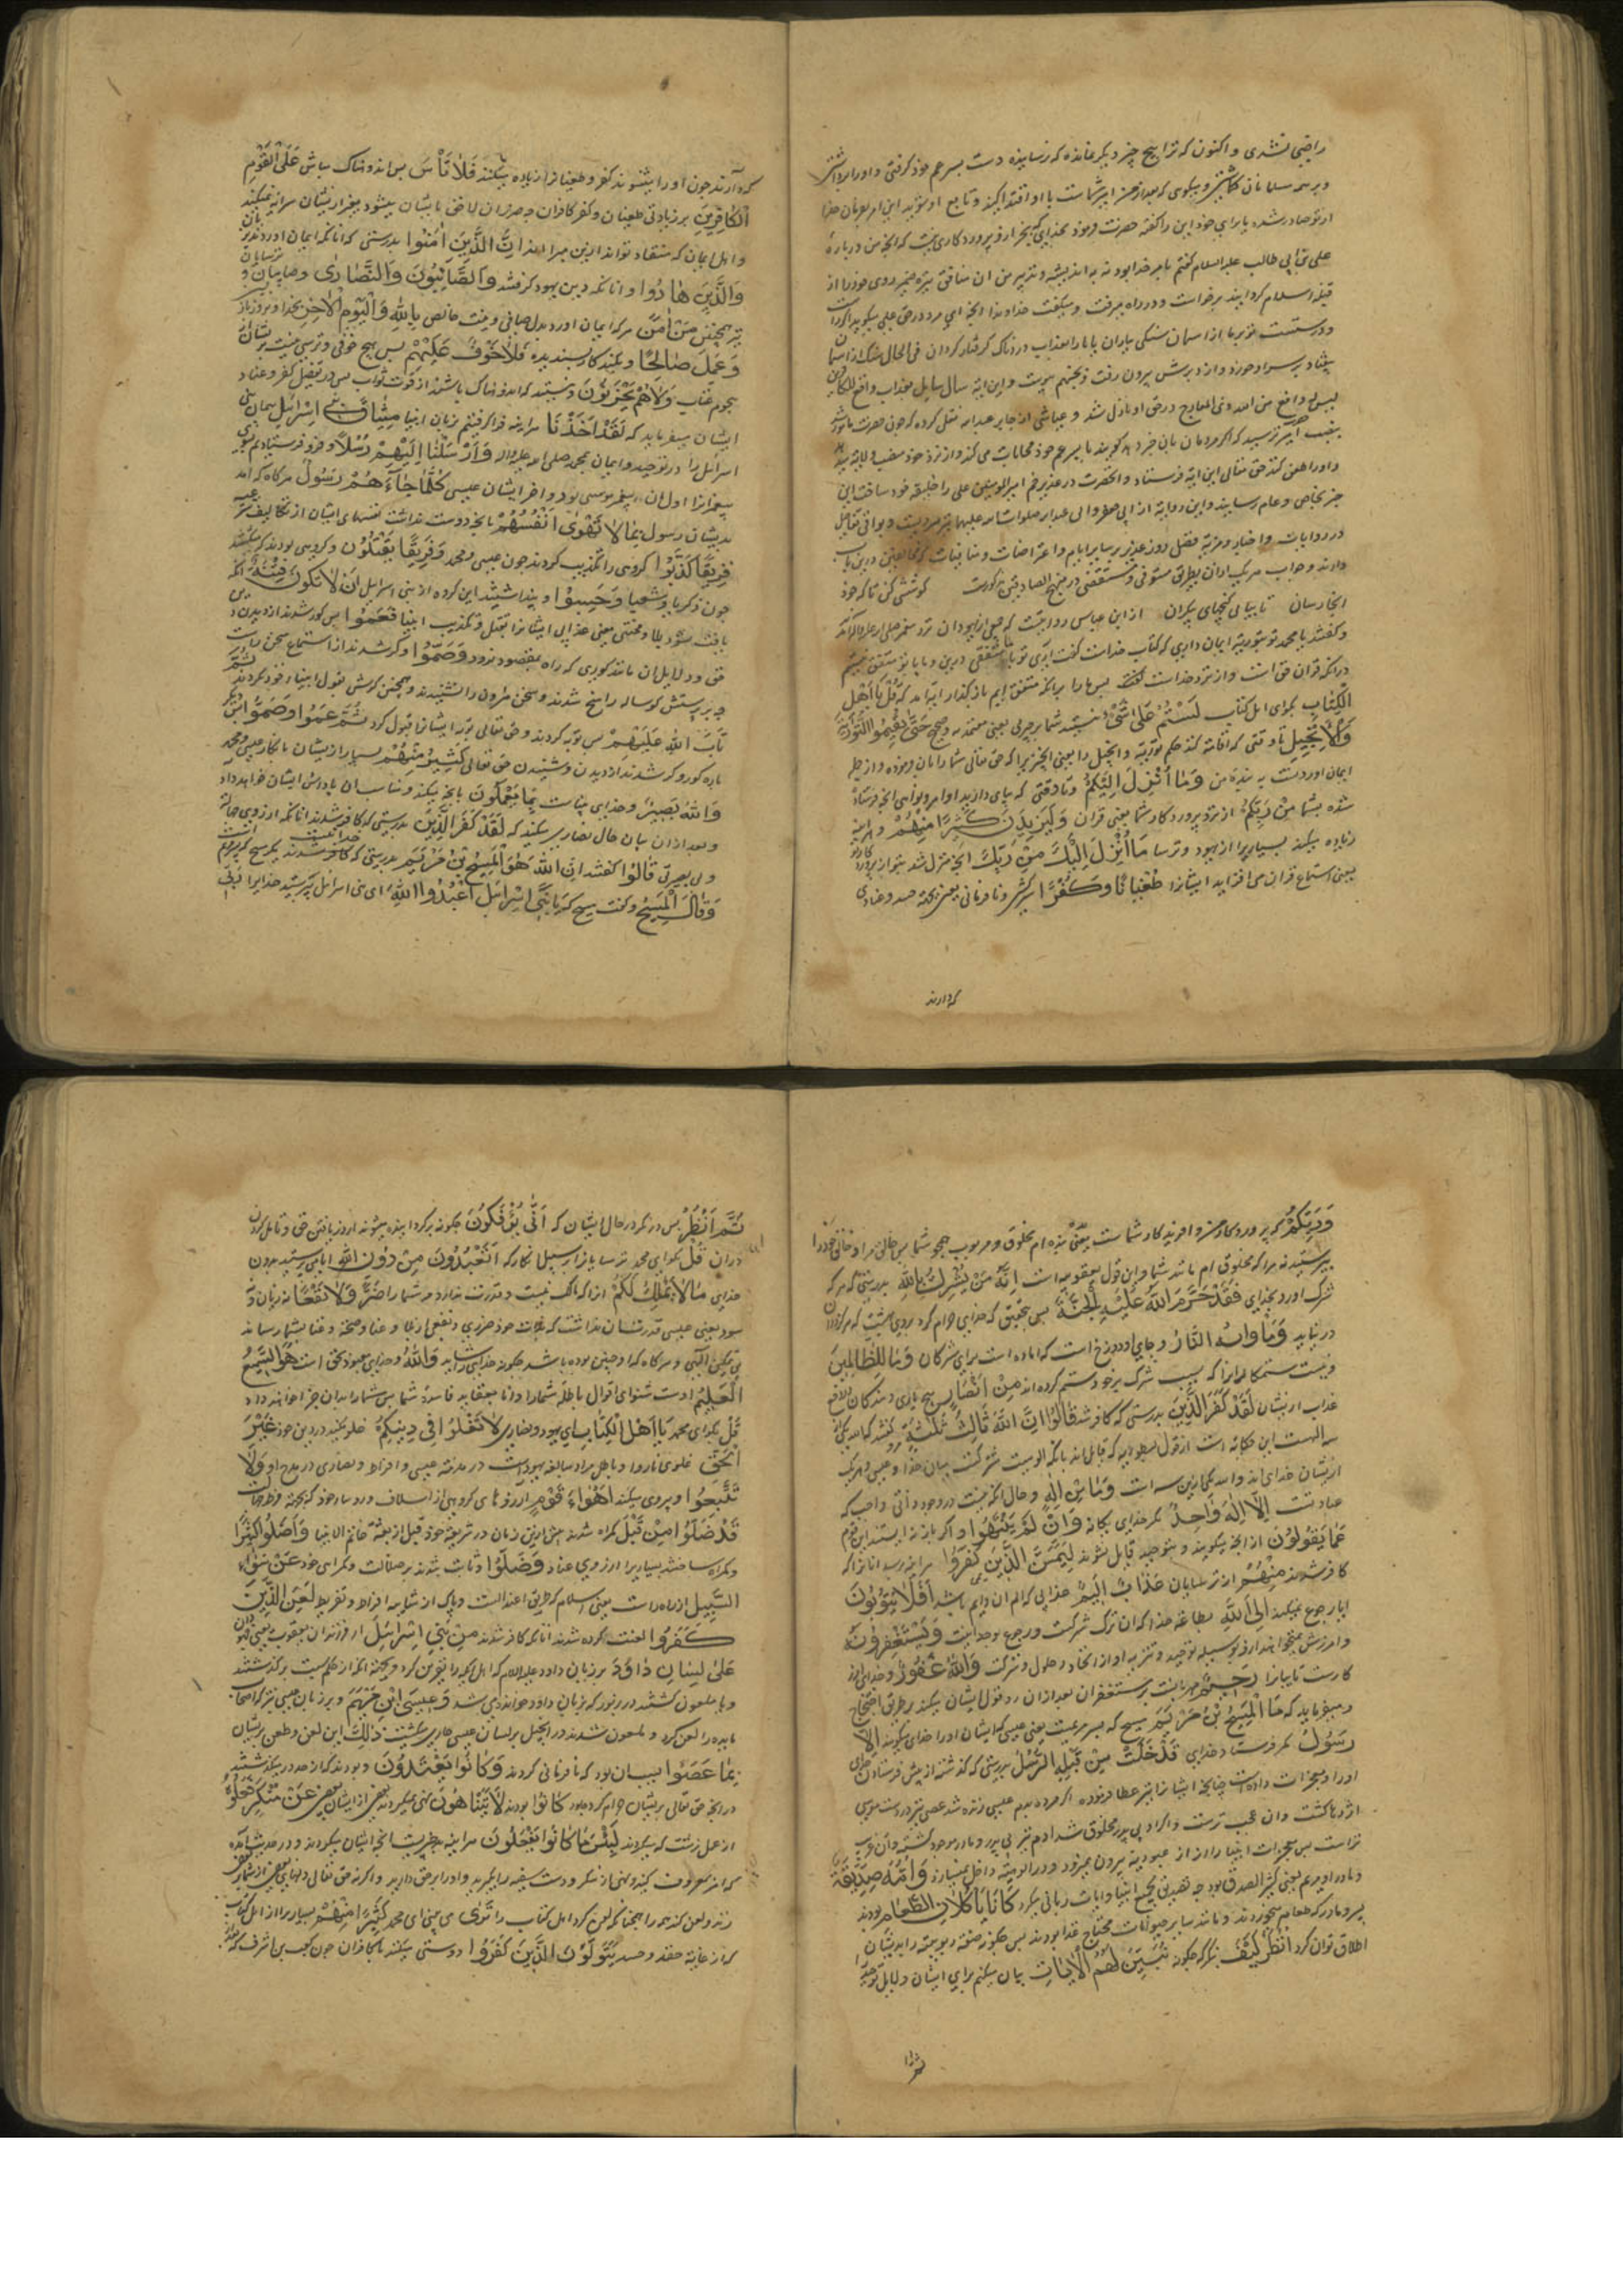 راضی نشدی و اکنون که ترا هیچ چیز دیگر نمانده که نرسانیده دست پسر عم خود گرفتی و او را برداشتی
و بر همه مسلمانان که بعد از من امیر شماست با او اقتدا کنید و تابع او شوید این امر بفرمان خدا
از تو صادر شده یا برای خود این را گفتهٔ حضرت فرمود بخدایی که بجز او پروردگاری نیست که آنچه من دربارهٔ
علی بن ابی طالب علیه السلام گفتم بامر خدا بود نه به اندیشه و تدبیر من ان منافق تیره ضمیر روی خود را از
قبله اسلام گردانیده برخواست و در راه میرفت و میگفت خداوندا آنچه این مرد در حق علی میگوید اگر راست
و درستست بفرما از آسمان سنگی بباران یا ما را بعذاب دردناک گرفتار گردان فی الحال سنگ از آسمان
بیفتاد بر سر او خورد و از دبرش بیرون رفت و بجهنم پیوست و این آیه سال سایل بعذاب واقع للکافرین
لیس له دافع من الله ذی المعارج در حق او نازل شد و عیاشی از جابر عبدالله نقل کرده که چون حضرت مامور شد
بنصب امیر ترسید که اگر مردمان بان خبر دهد گویند با پسر عم خود محابات میکند و از نزد خود منصب ولایه میدهد
و او را طعن کنند حق تعالی این آیه فرستاد و آنحضرت در غدیر خم امیرالمومنین علی را خلیفهٔ خود ساخت این
خبر بخاص و عام رسانید و این روایة از ابی جعفر و ابی عبدالله صلوات الله علیهما نیز مرویست و بواقی تفاصیل
در روایات و اخبار و مزیه فضل روز غدیر بر سایر ایام و اعتراضات و مناقشات که مخالفین درین باب
دارند و جواب هر یک از ان بطریق مستوفی و مستقصی در منهج الصادقین مذکورست کوشش کن تا که خود
آنجا رسان تا بیابی گنجهای بیکران از ابن عباس روایتست که جمعی از یهودان نزد پیغمبر صلی الله علیه و اله آمدند
و گفتند یا محمد تو بتوریة ایمان داری که کتاب خداست گفت آری تو با ما متفقی درین و ما با تو متفق نیستیم
در آنکه قران حق است و از نزد خداست گفتند پس ما را بر آنکه متفق ایم باز گذار آیه آمد که قُلْ یَا أَهْلَ
الْکِتَابِ بگو ای اهل کتاب لَسْتُمْ عَلَی شَیْءٍ نیستید شما بر چیزی یعنی معتد به و صحیح حَتَّی تُقِیمُوا التَّوْرَاةَ
وَالْإِنْجِیلَ تا وقتی که اقامة کنید حکم توریة و انجیل را یعنی آنچیز را که حق تعالی شما را بان فرموده و از جمله
ایمان آوردنست به من وَمَا أُنْزِلَ إِلَیْکُمْ و تا وقتی که بپای دارید اوامر و نواهی آنچه فرستاده
شده بشما مِنْ رَبِّکُمْ از نزد پروردگار شما یعنی قران وَلَیَزِیدَنَّ کَثِیرًا مِنْهُمْ و هر آینه
زیاده میکند بسیاریرا از یهود و ترسا مَا أُنْزِلَ إِلَیْکَ مِنْ رَبِّکَ آنچه منزل شد بتو از پروردگار تو
یعنی استماع قران می افزاید ایشانرا طُغْیَانًا وَکُفْرًا سرکشی و نافرمانی یعنی بجهة حسد و عنادی
که دارند
که دارند چون او را بشنوند کفر و طغیانرا زیاده میکنند فَلَا تَأْسَ پس اندوهناک مباش عَلَی الْقَوْمِ
الْکَافِرِینَ بر زیادتی طغیان و کفر کافران چه ضرر ان لاحق بایشان میشود بغیر ایشان سرایة نمیکند
و اهل ایمان که منقاد تواند ازین مبرا اند إِنَّ الَّذِینَ آمَنُوا بدرستی که آنانکه ایمان آوردند بزبان
وَالَّذِینَ هَادُوا و آنانکه دین یهود گرفتند وَالصَّابِئُونَ وَالنَّصَارَی و صابیان و ترسایان
نیز همچنین مَنْ آمَنَ هر که ایمان آورد بدل صافی و نیت خالص بِاللَّهِ وَالْیَوْمِ الْآخِرِ بخدا و بروز بازپسین
وَعَمِلَ صَالِحًا و بکند کار پسندیده فَلَا خَوْفٌ عَلَیْهِمْ پس هیچ خوفی و ترسی نیست بر ایشان از
هجوم عقاب وَلَا هُمْ یَحْزَنُونَ و نیستند که اندوهناک باشند از فوت ثواب پس در تفصیل کفر و عناد
ایشان میفرماید که لَقَدْ أَخَذْنَا هر آینه فرا گرفتیم بزبان انبیا مِیثَاقَ بَنِی إِسْرَائِیلَ پیمان بنی
اسرائیل را در توحید و ایمان بمحمد صلی الله علیه و اله وَأَرْسَلْنَا إِلَیْهِمْ رُسُلًا و فرو فرستادیم بسوی
پیغمبرانرا اول ان پیغمبر موسی بود و آخر ایشان عیسی کُلَّمَا جَاءَهُمْ رَسُولٌ هرگاه که آمد
بدیشان رسول بِمَا لَا تَهْوَی أَنْفُسُهُمْ بانچه دوست نداشت نفسهای ایشان از تکالیف شرعیه
فَرِیقًا کَذَّبُوا گروهی را تکذیب کردند چون عیسی و محمد وَفَرِیقًا یَقْتُلُونَ و گروهی بودند که میکشتند
چون زکریا و شعیا وَحَسِبُوا و پنداشتند این گروه از بنی اسرایل أَنْ لَا تَکُونَ فِتْنَةٌ آنکه
یافت نشود بلا و محنتی یعنی عذابی ایشانرا بقتل و تکذیب انبیا فَعَمُوا پس کور شدند از دیدن
حق و دلایل ان مانند کوری که راه بمقصود نبرد وَصَمُّوا و کر شدند از استماع سخن راست
چه بر پرستش گوساله راسخ شدند و سخن هارون را نشنیدند و همچنین گوش بقول انبیاء خود نکردند ثُمَّ
تَابَ اللَّهُ عَلَیْهِمْ پس توبه کردند و حق تعالی توبه ایشانرا قبول کرد ثُمَّ عَمُوا وَصَمُّوا پس دیگر
باره کور و کر شدند از دیدن و شنیدن حق کَثِیرٌ مِنْهُمْ بسیار از ایشان بانکار عیسی و محمد
وَاللَّهُ بَصِیرٌ و خدای بیناست بِمَا یَعْمَلُونَ بانچه میکنند و مناسب ان پاداش ایشان خواهد داد
و بعد از ان بیان حال نصاری میکند که لَقَدْ کَفَرَ الَّذِینَ بدرستی که کافر شدند آنانکه از روی جهالت
و بی بصیرتی قَالُوا گفتند إِنَّ اللَّهَ هُوَ الْمَسِیحُ بْنُ مَرْیَمَ بدرستی که خدا مسیح پسر مریمست
وَقَالَ الْمَسِیحُ و گفت مسیح که یَا بَنِی إِسْرَائِیلَ اعْبُدُوا اللَّهَ ای بنی اسرائیل بپرستید خدایرا رَبِّی
وَرَبَّکُمْ که پروردگار من و آفریدگار شماست یعنی بنده ام مخلوق و مربوب همچو شما پس خالق من و خالق خود را
بپرستید نه مرا که مخلوق ام مانند شما و این قول یعقوبیه است إِنَّهُ مَنْ یُشْرِکْ بِاللَّهِ بدرستی که هر که
شرک آورد بخدای فَقَدْ حَرَّمَ اللَّهُ عَلَیْهِ الْجَنَّةَ پس بتحقیق که خدای حرام کرد بر وی بهشت که هرگز در ان
در نیاید وَمَأْوَاهُ النَّارُ و جای او دوزخ است که آماده است برای مشرکان وَمَا لِلظَّالِمِینَ
و نیست ستمکارانرا که بسبب شرک بر خود ستم کرده اند مِنْ أَنْصَارٍ هیچ یاری دهندگان دافع
عذاب از ایشان لَقَدْ کَفَرَ الَّذِینَ بدرستی که کافر شدند قَالُوا إِنَّ اللَّهَ ثَالِثُ ثَلَاثَةٍ گفتند که الله یکی
سه الهست این حکایة است از قول نسطوریه که قایل اند بانکه الوهیت مشترکست میان خدا و عیسی و مریم
از ایشان خدای اند و الله یکی ازین سه است وَمَا مِنْ إِلَهٍ و حال آنکه نیست در وجود ذاتی واجب که
عبادتست إِلَّا إِلَهٌ وَاحِدٌ مگر خدای یگانه وَإِنْ لَمْ یَنْتَهُوا و اگر باز نه ایستند این قوم
عَمَّا یَقُولُونَ از آنچه میگویند و بتوحید قایل نشوند لَیَمَسَّنَّ الَّذِینَ کَفَرُوا هر آینه برسد آنانرا که
کافر شدند مِنْهُمْ از ترسایان عَذَابٌ أَلِیمٌ عذابی که الم ان دایم باشد أَفَلَا یَتُوبُونَ
ایا رجوع نمیکنند إِلَی اللَّهِ بطاعة خدا که ان ترک شرکت و رجوع بوحدانیت وَیَسْتَغْفِرُونَهُ
و امرزش نمیخواهند از و بوسیله توحید و تنزیه او از اتحاد و حلول و شرکت وَاللَّهُ غَفُورٌ و خدای امرز
کارست تایبانرا رَحِیمٌ مهربانست بر مستغفران بعد از ان رد قول ایشان میکند بر طریق احتجاج
و میفرماید که مَا الْمَسِیحُ بْنُ مَرْیَمَ مسیح که پسر مریمست یعنی عیسی که ایشان او را خدای میگویند إِلَّا
رَسُولٌ مگر فرستاده خدای قَدْ خَلَتْ مِنْ قَبْلِهِ الرُّسُلُ بدرستی که گذشته از پیش فرستادن خدای
او را و معجزات داده است چنانچه ایشانرا نیز عطا فرموده اگر مرده بدم عیسی زنده شد عصی نیز در دست موسی
اژدها گشت و ان عجب ترست و اگر او بی پدر مخلوق شد ادم نیز بی پدر و مادر موجود گشته و ان غریب
تر است پس معجزات انبیا را از عبودیة بیرون نمیبرد و در الوهیة داخل نمیسازد وَأُمُّهُ صِدِّیقَةٌ
و مادر او مریم یعنی کثیر الصدق بود چه تصدیق بجمیع انبیا و آیات ربانی میکرد کَانَا یَأْکُلَانِ الطَّعَامَ بودند
پسر و مادر که طعام میخوردند و مانند سایر حیوانات محتاج غذا بودند پس چگونه صفة ربوبیة را بر ایشان
اطلاق توان کرد انْظُرْ کَیْفَ بنگر که چگونه نُبَیِّنُ لَهُمُ الْآیَاتِ بیان میکنم برای ایشان دلایل توحید
ثم انظر
ثُمَّ انْظُرْ پس در نگر در حال ایشان که أَنَّی یُؤْفَکُونَ چگونه برگردانیده میشوند از دریافتن حق و تامل کردن
در ان قُلْ بگو ای محمد ترسایانرا بر سبیل انکار که أَتَعْبُدُونَ مِنْ دُونِ اللَّهِ ایا میپرستید بدون
خدای مَا لَا یَمْلِکُ لَکُمْ آنرا که مالک نیست و قدرت ندارد مر شما را ضَرًّا وَلَا نَفْعًا نه زیان و نه
سود یعنی عیسی قدرتش ان نداشت که بذات خود ضرری و نفعی از بلا و عنا و صحة و غنا بشما رساند
بی تمکین الهی و هرگاه که او چنین بوده باشد چگونه خدایی را شاید وَاللَّهُ و خدای معبود بحق است هُوَ السَّمِیعُ
الْعَلِیمُ اوست شنوای اقوال باطله شما را و دانا بعقاید فاسدهٔ شما پس شما را بدان جزا خواهد داد
قُلْ بگو ای محمد یَا أَهْلَ الْکِتَابِ ای یهود و نصاری لَا تَغْلُوا فِی دِینِکُمْ غلو مکنید در دین خود غَیْرَ
الْحَقِّ غلوی ناروا و باطل مراد مبالغه یهودست در مذمة عیسی و افراط و نصاری در مدح او وَلَا
تَتَّبِعُوا و پیروی مکنید أَهْوَاءَ قَوْمٍ آرزوهای گروهی از اسلاف و روسا خود که بجهة فرط جهالت
قَدْ ضَلُّوا مِنْ قَبْلُ گمراه شدند پیش ازین زمان در شریعة خود قبل از بعثة خاتم الانبیا وَأَضَلُّوا کَثِیرًا
و گمراه ساختند بسیاریرا از روی عناد وَضَلُّوا و ثابت شدند بر ضلالت و گمراهی خود عَنْ سَوَاءِ
السَّبِیلِ از راه راست یعنی اسلام که طریق اعتدالست و پاک از شایبه افراط و تفریط لُعِنَ الَّذِینَ
کَفَرُوا لعنت کرده شدند آنانکه کافر شدند مِنْ بَنِی إِسْرَائِیلَ از فرزندان یعقوب
عَلَی لِسَانِ دَاوُدَ بر زبان داود علیه السلام که اهل ایله را نفرین کرد بجهة آنکه از حکم سبت در گذشتند
و یا ملعون گشتند در زبور که بزبان داود خوانده می شد وَعِیسَی ابْنِ مَرْیَمَ و بر زبان عیسی نیز که اصحاب
مایده را لعن کرد و ملعون شدند در انجیل بر لسان عیسی جاری میگشت ذَلِکَ این لعن و طعن بر ایشان
بِمَا عَصَوْا بسبب ان بود که نافرمانی کردند وَکَانُوا یَعْتَدُونَ و بودند که از حد در میگذشتند
در آنچه حق تعالی بر ایشان حرام کرده بود کَانُوا بودند لَا یَتَنَاهَوْنَ نهی نمیکردند بعضی از ایشان بعضی عَنْ مُنْکَرٍ فَعَلُوهُ
از عمل زشت که میکردند لَبِئْسَ مَا کَانُوا یَفْعَلُونَ هر آینه بد چیزیست آنچه ایشان میکردند و در حدیث آمده
که امر بمعروف کنید و نهی از منکر و دست سفیه را بگیرید و او را بر حق دارید و اگر نه حق تعالی دلهای بعضی از شما بر بعضی
زند و لعن کند همه را همچنانکه لعن کرد اهل کتاب را تَرَی می بینی ای محمد کَثِیرًا مِنْهُمْ بسیاریرا از اهل کتاب
که از غایة حقد و حسد یَتَوَلَّوْنَ الَّذِینَ کَفَرُوا دوستی میکنند با کافران چون کعب بن اشرف که